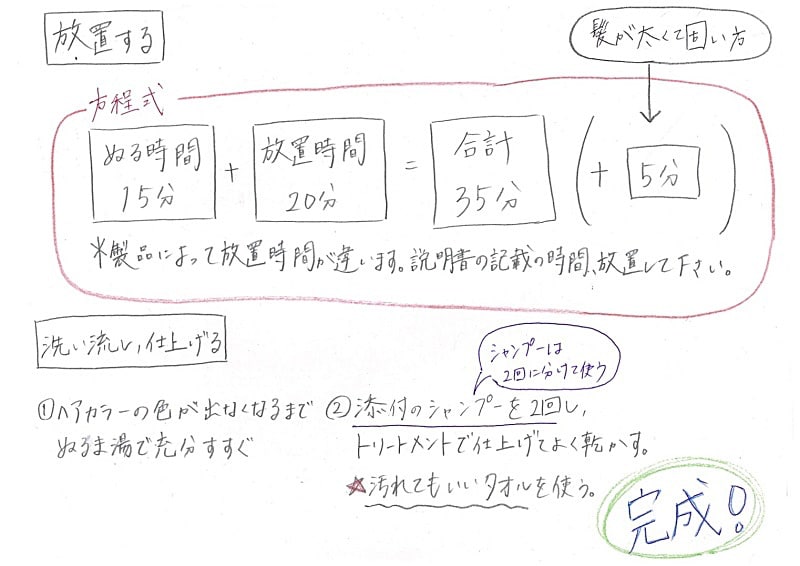 放置する
髪が太くて固い方
方程式
ぬる時間
15分
+
放置時間
20分
=
合計
35分
(+ 5分)
*製品によって放置時間が違います。説明書の記載の時間、放置して下さい。
洗い流し、仕上げる
シャンプーは
2回に分けて使う
①ヘアカラーの色が出なくなるまで
ぬるま湯で充分すすぐ
②添付のシャンプーを2回し、
トリートメントで仕上げてよく乾かす。
☆汚れてもいいタオルを使う。
完成!